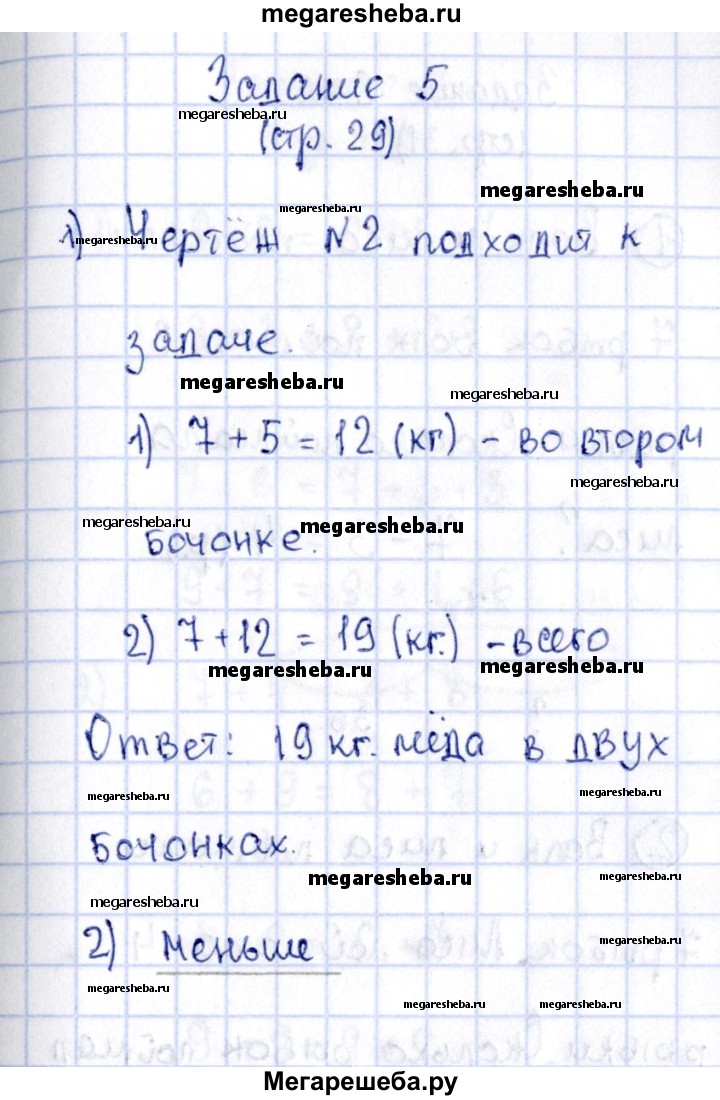 megaresheba.ru
Задание 5
megaresheba.ru
(стр. 29)
megaresheba.ru
megaresheba.ru
1) Чертёж №2 подходит к
megaresheba.ru
задаче.
megaresheba.ru
megaresheba.ru
1) 7 + 5 = 12 (кг) - во втором
megaresheba.ru
megaresheba.ru
бочонке.
megaresheba.ru
2) 7 + 12 = 19 (кг.) - всего
megaresheba.ru
megaresheba.ru
Ответ: 19 кг. мёда в двух
megaresheba.ru
megaresheba.ru
бочонках.
megaresheba.ru
megaresheba.ru
megaresheba.ru
2) меньше
megaresheba.ru
megaresheba.ru
megaresheba.ru
megaresheba.ru
Мегарешеба.ру